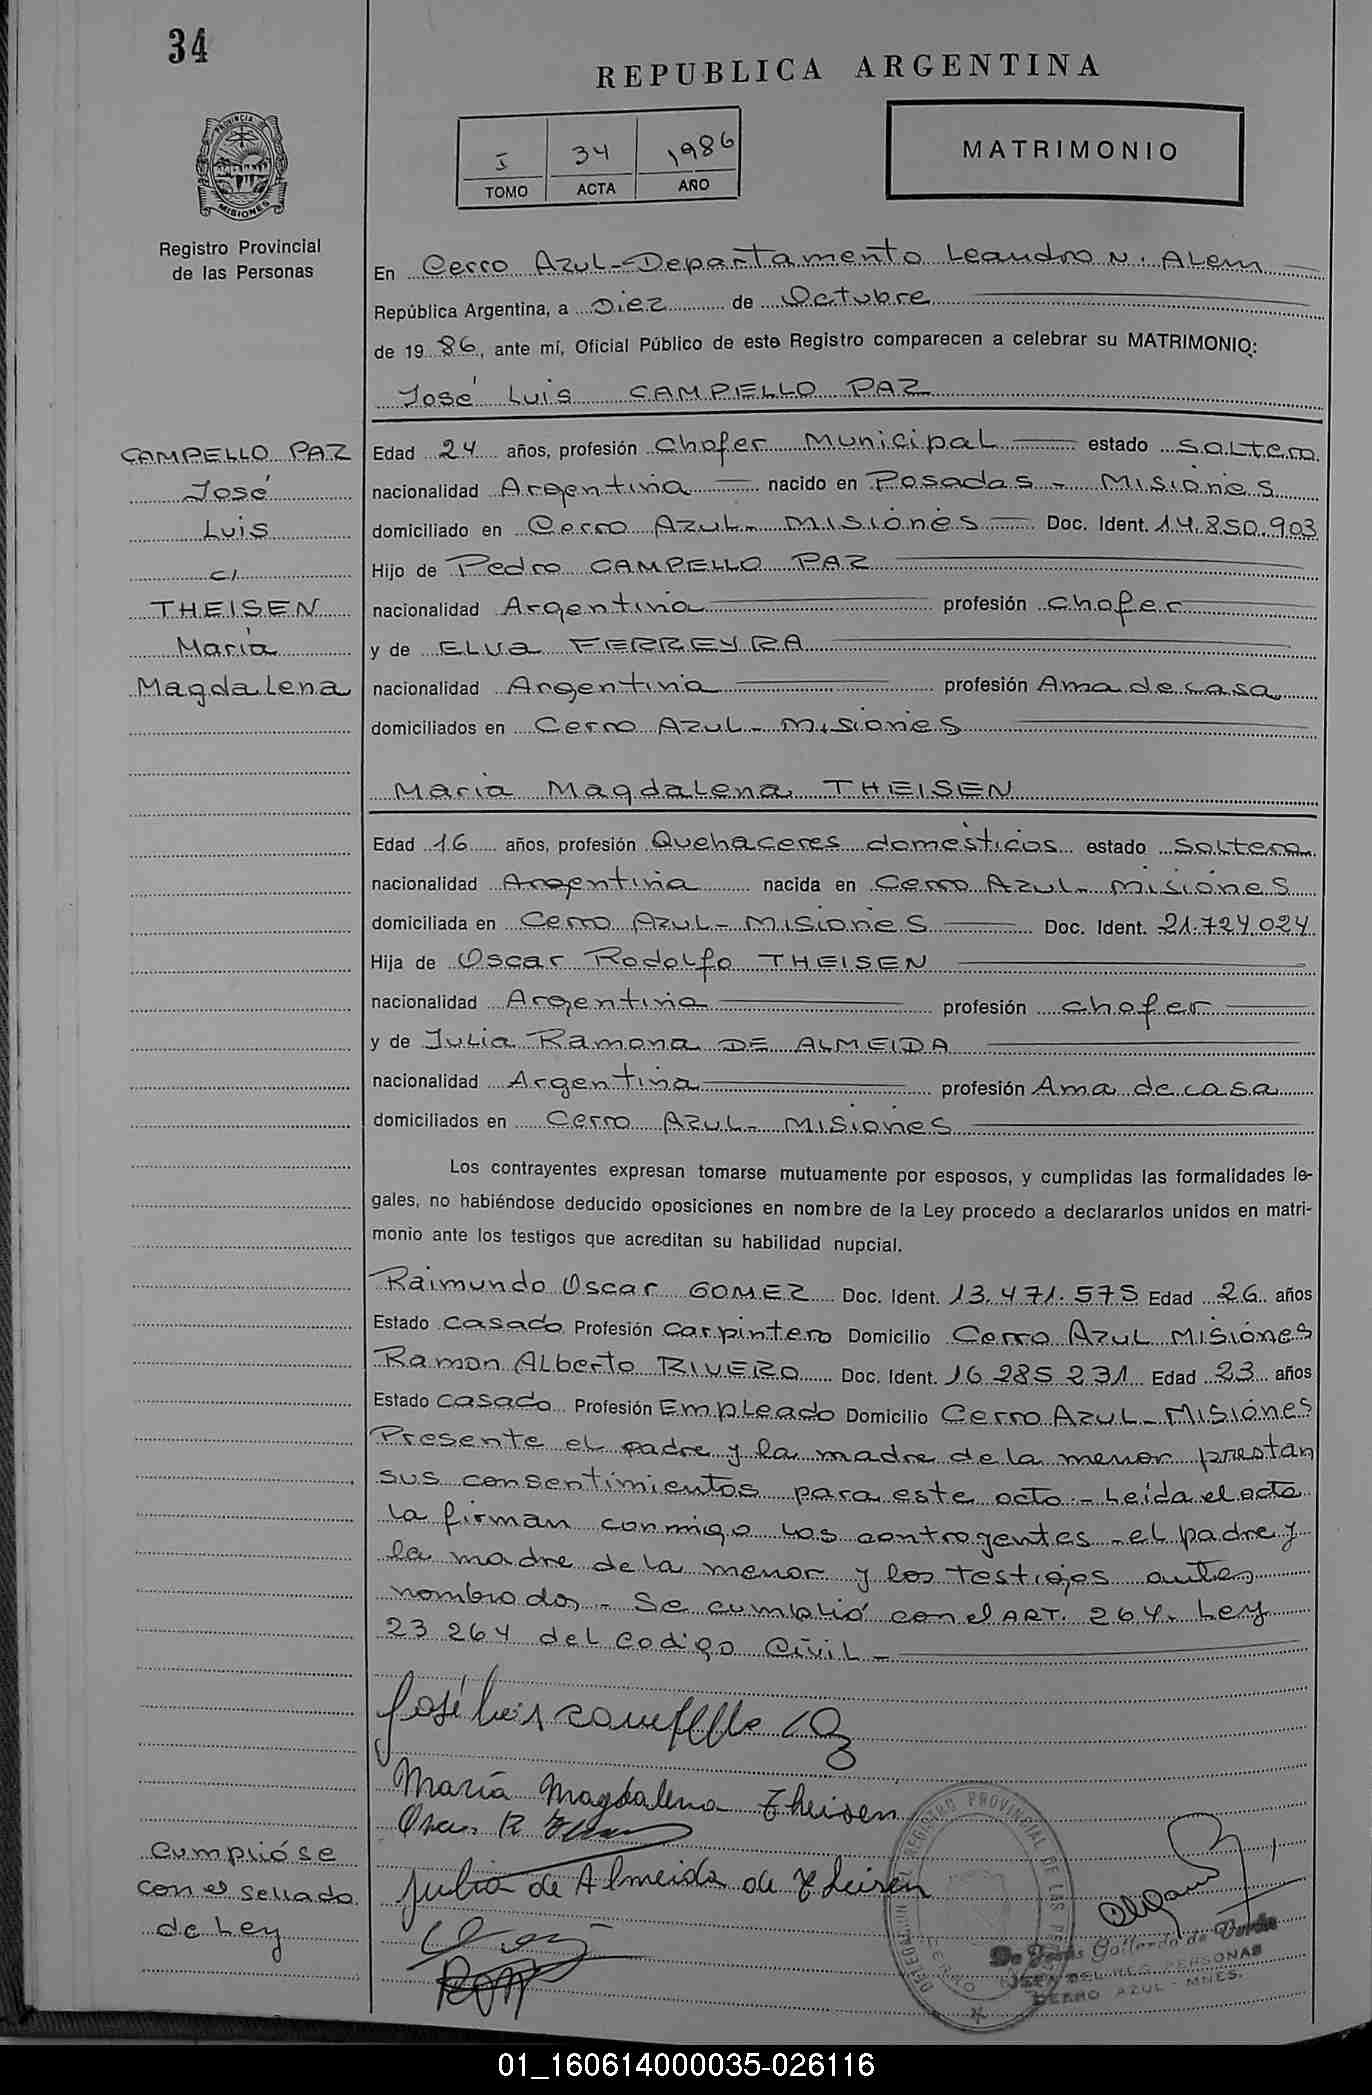 34
REPUBLICA ARGENTINA
I 34 1986
TOMO ACTA AÑO
MATRIMONIO
PROVINCIA
MISIONES
Registro Provincial
de las Personas
En Cerro Azul-Departamento Leandro N. Alem
República Argentina, a Diez de Octubre
de 1986, ante mí, Oficial Público de este Registro comparecen a celebrar su MATRIMONIO:
José Luis CAMPELLO PAZ
CAMPELLO PAZ
José
Luis
c/
THEISEN
María
Magdalena
Edad 24 años, profesión Chofer Municipal estado soltero
nacionalidad Argentina nacido en Posadas - Misiones
domiciliado en Cerro Azul- Misiones Doc. Ident. 14.850.903
Hijo de Pedro CAMPELLO PAZ
nacionalidad Argentina profesión chofer
y de Elva FERREYRA
nacionalidad Argentina profesión Ama de casa
domiciliados en Cerro Azul - Misiones
María Magdalena THEISEN
Edad 16 años, profesión Quehaceres domésticos estado soltera
nacionalidad Argentina nacida en Cerro Azul- Misiones
domiciliada en Cerro Azul- Misiones Doc. Ident. 21.724.024
Hija de Oscar Rodolfo THEISEN
nacionalidad Argentina profesión chofer
y de Julia Ramona DE ALMEIDA
nacionalidad Argentina profesión Ama de casa
domiciliados en Cerro Azul- Misiones
Los contrayentes expresan tomarse mutuamente por esposos, y cumplidas las formalidades le-
gales, no habiéndose deducido oposiciones en nombre de la Ley procedo a declararlos unidos en matri-
monio ante los testigos que acreditan su habilidad nupcial.
Raimundo Oscar GOMEZ Doc. Ident. 13.471.575 Edad 26 años
Estado casado Profesión carpintero Domicilio Cerro Azul Misiones
Ramon Alberto RIVERO Doc. Ident. 16 285 231 Edad 23 años
Estado casado Profesión Empleado Domicilio Cerro Azul- Misiones
Presente el padre y la madre de la menor prestan
sus consentimientos para este acto - Leida el acta
la firman conmigo los contrayentes - el padre y
la madre de la menor y los testigos antes
nombrados - Se cumplió con el ART. 264. Ley
23 264 del codigo Civil -
José Luis Campello Paz
María Magdalena Theisen
Oscar R
Julia de Almeida de Theisen
Cumplióse
con el sellado
de Ley
REGISTRO PROVINCIAL DE LAS
JEFA DEL REG. PERSONAS
CERRO AZUL - MNES.
01_160614000035-026116